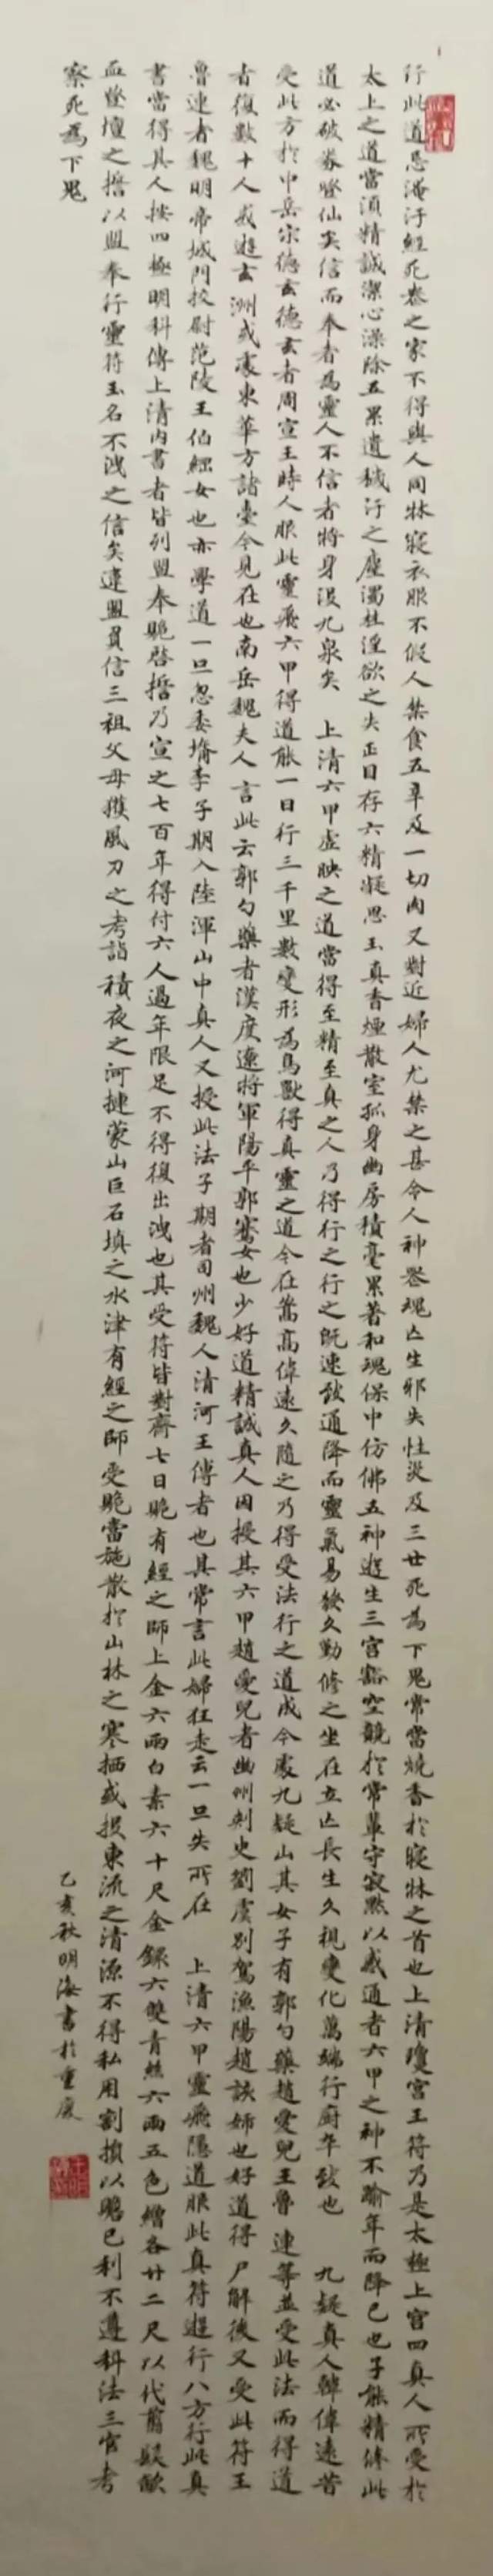 行此道忌淹汙經死喪之家不得與人同牀寢衣服不假人禁食五辛及一切肉又對近婦人尤禁之甚令人神喪魂亡生邪失性災及三世死為下鬼常當燒香於寢牀之首也上清瓊宮玉符乃是太極上宮四真人所受於
太上之道當須精誠潔心澡除五累遺穢汙之塵濁杜淫欲之失正目存六精凝思玉真香煙散室孤身幽房積毫累著和魂保中仿佛五神遊生三宮豁空競於常輩守寂默以感通者六甲之神不踰年而降已也子能精修此
道必破券登仙矣信而奉者為靈人不信者將身沒九泉矣 上清六甲虛映之道當得至精至真之人乃得行之行之既速致通降而靈氣易發久勤修之坐在立亡長生久視變化萬端行廚卒致也 九疑真人韓偉遠昔
受此方於中岳宗德玄德玄者周宣王時人服此靈飛六甲得道能一日行三千里數變形為鳥獸得真靈之道今在嵩高偉遠久隨之乃得受法行之道成今處九疑山其女子有郭勺藥趙愛兒王魯連等並受此法而得道
者復數十人或遊玄洲或處東華方諸臺今見在也南岳魏夫人言此云郭勺藥者漢度遼將軍陽平郭騫女也少好道精誠真人因授其六甲趙愛兒者幽州刺史劉虞別駕漁陽趙該姊也好道得尸解後又受此符王
魯連者魏明帝城門校尉范陵王伯綱女也亦學道一旦忽委壻李子期入陸渾山中真人又授此法子期者司州魏人清河王傅者也其常言此婦狂走云一旦失所在 上清六甲靈飛隱道服此真符遊行八方行此真
書當得其人按四極明科傳上清內書者皆列盟奉貺啓誓乃宣之七百年得付六人過年限足不得復出洩也其受符皆對齋七日貺有經之師上金六兩白素六十尺金鐶六雙青絲六兩五色繒各廿二尺以代翦髮歃
血登壇之誓以盟奉行靈符玉名不洩之信矣違盟負信三祖父母獲風刀之考詣積夜之河揵蒙山巨石填之水津有經之師受貺當施散於山林之寒栖或投東流之清源不得私用割損以贍己利不遵科法三官考
察死為下鬼
乙亥秋明海書於重慶